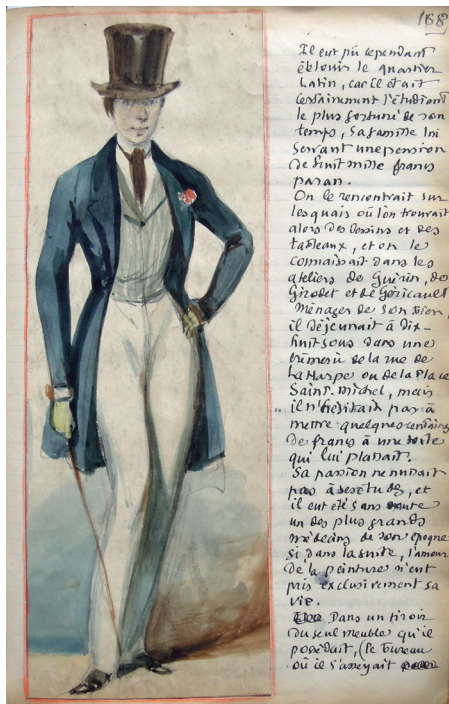 168
Il eut pu cependant
éblouir le quartier
Latin, car il était
certainement l'étudiant
le plus fortuné de son
temps, sa famille lui
servant une pension
de huit mille francs
par an.
On le rencontrait sur
les quais où l'on trouvait
alors des dessins et des
tableaux, et on le
connaissait dans les
ateliers de Guérin, de
Girodet et de Géricault
Ménager de son bien,
il déjeunait à dix-
huit sous dans une
crèmerie de la rue de
La Harpe ou de la Place
Saint-Michel, mais
il n'hésitait pas à
mettre quelques centaines
de francs à une toile
qui lui plaisait.
Sa passion ne nuisait
pas à ses études, et
il eut été sans doute
un des plus grands
médecins de son époque
si dans la suite, l'amour
de la peinture n'eut
pris exclusivement sa
vie.
Dans un tiroir
du seul meuble qu'il
possédait, (le bureau
où il s'asseyait